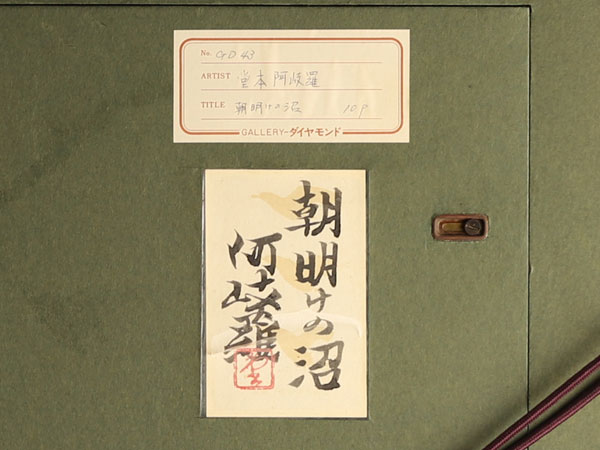 No. GD 43
ARTIST 堂本阿岐羅
TITLE 朝明けの沼 10P
GALLERY-ダイヤモンド
朝明けの沼
阿岐羅